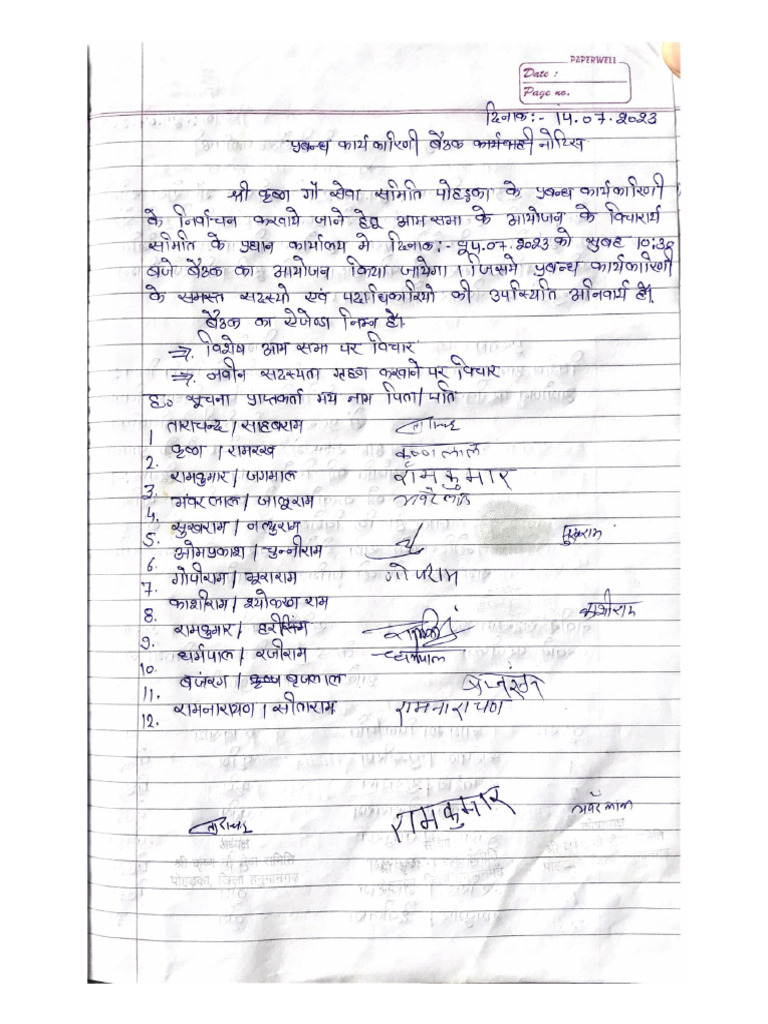 PAPERWELL
Date :
Page no.
दिनाक:- 14.07.2023
प्रबन्ध कार्यकारिणी बैठक कार्यवाही नोटिस
श्री कृष्णा गौ सेवा समिति पोहड़का के प्रबन्ध कार्यकारिणी
के निर्वाचन करवाये जाने हेतू आम सभा के आयोजन के विचारार्थ
समिति के प्रधान कार्यालय मे दिनाक:- .07.2023 को सुबह 10:30
बजे बैठक का आयोजन किया जायेगा। जिसमे प्रबन्ध कार्यकारिणी
के समस्त सदस्यो एवं पदाधिकारियो की उपस्थिति अनिवार्य है।
बैठक का ऐजेण्डा निम्न है।
⇒ विशेष आम सभा पर विचार
⇒ नवीन सदस्यता ग्रहण करवाने पर विचार
ह० सूचना प्राप्तकर्ता मय नाम पिता/पति
1 ताराचन्द / साहबराम ताराचन्द
2. कृष्ण / रामरख कृष्णलाल
3. रामकुमार / जगमाल रामकुमार
4. भंवर लाल / जालूराम भवंरलाल
5. सुखराम / नत्थुराम सुखराम
6. ओमप्रकाश / चुन्नीराम
7. गोपीराम / भूराराम गोपीराम
8. काशीराम / श्योकरण राम काशीराम
9. रामकुमार / हरीसिंग
10. धर्मपाल / रजीराम धर्मपाल
11. बजंरग / कृष्ण बृजलाल बजंरग
12. रामनारायण / सीताराम रामनारायण
ताराचन्द रामकुमार भवंरलाल
अध्यक्ष सचिव कोषाध्यक्ष
श्री कृष्णा गौ सेवा समिति
पोहड़का, जिला हनुमानगढ़